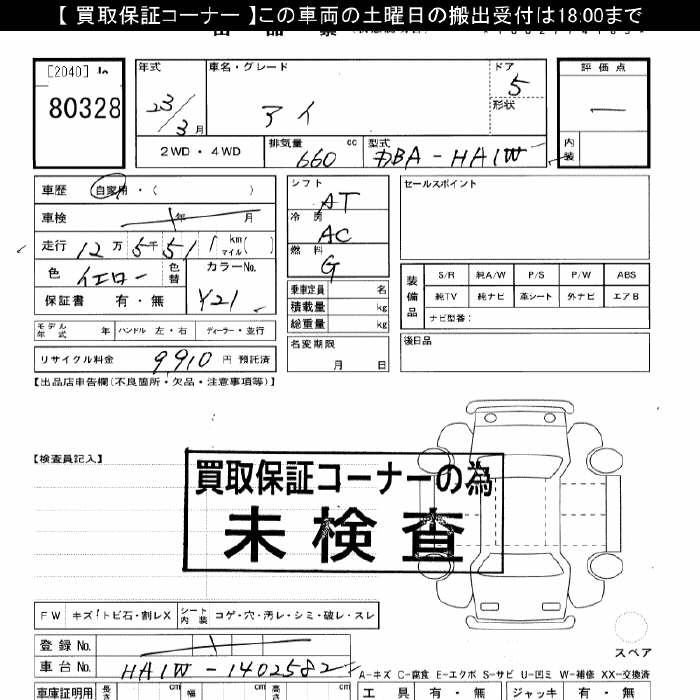 【 買取保証コーナー 】この車両の土曜日の搬出受付は18:00まで
[2040]
80328
年式
23/3月
車名・グレード
アイ
ドア
5
形状
評価点
一
内装
2WD・4WD
排気量 660 cc
型式 DBA-HA1W
車歴 自家用・( )
車検 年 月
走行 12万5千51 km マイル( )
色 イエロー 色替
カラーNo. Y21
保証書 有・無
モデル年式 年 ハンドル 左・右 ディーラー・並行
リサイクル料金 9910 円 預託済
シフト AT
冷房 AC
燃料 G
乗車定員 名
積載量 kg
総重量 kg
名変期限
月 日
セールスポイント
装備品
S/R 純A/W P/S P/W ABS
純TV 純ナビ 革シート 外ナビ エアB
ナビ型番:
後日品
【出品店申告欄(不良箇所・欠品・注意事項等)】
【検査員記入】
買取保証コーナーの為
未検査
FW キズ・トビ石・割レX シート内装 コゲ・穴・汚レ・シミ・破レ・スレ
スペア
登録No.
車台No. HA1W-1402582
A-キズ C-腐食 E-エクボ S-サビ U-凹ミ W-補修 XX-交換済
車庫証明用 長さ cm 幅 cm 高さ cm
工具 有・無 ジャッキ 有・無